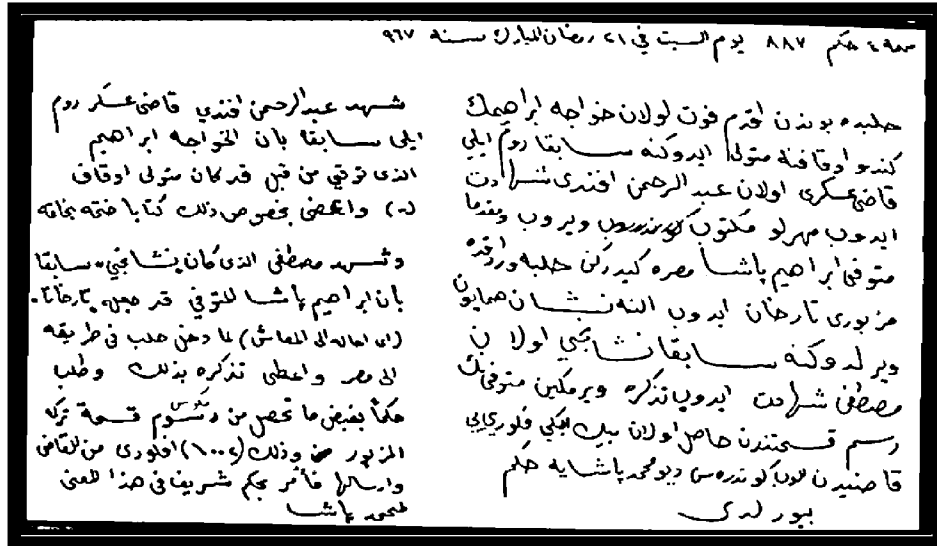 صـ ٤٩ حكم ٨٨٧ يوم السبت في ٢١ رمضان المبارك سنة ٩٦٧
حلبده بوندن اقدم فوت اولان خواجه ابراهيمك
كندو اوقافنه متولى ايدوكنه سابقا روم ايلى
قاضى عسكرى اولان عبد الرحمن افندى شهادت
ايدوب مهرلو مكتوب ويروب ومقدما
متوفى ابراهيم پاشا مصره كيدركن حلبه
مزبورى تارخان ايدوب النه نشان همايون
ويرلدوكنه سابقا نشانجى اولان
مصطفى شهادت ايدوب تذكره ويرمكين متوفىنك
رسم قسمتندن حاصل اولان بيك ايكى فلورى
قاضيدن الوب كوندره سى ديو محمد پاشايه حكم
بيورلدى
شهد عبد الرحمن افندي قاضى عسكر روم
ايلى سابقا بأن الخواجه ابراهيم
الذى توفي من قبل قد كان متولى اوقاف
له) واعطى بخصوص ذلك كتابا ختمه بخاتمه
وشهد مصطفى الذى كان نشانجي سابقا
بان ابراهيم پاشا المتوفي قد جعله تارخانا
(اى احاله الى المعاش) لما دخل حلب في طريقه
الى مصر واعطى تذكره بذلك وطلب
حكما بقبض ما تحصل من رسوم قسمة تركة
المزبور وذلك (١٠٠٢) افلورى من القاضى
وارسالها فأمر بحكم شريف في هذا المعنى
لمحمد پاشا